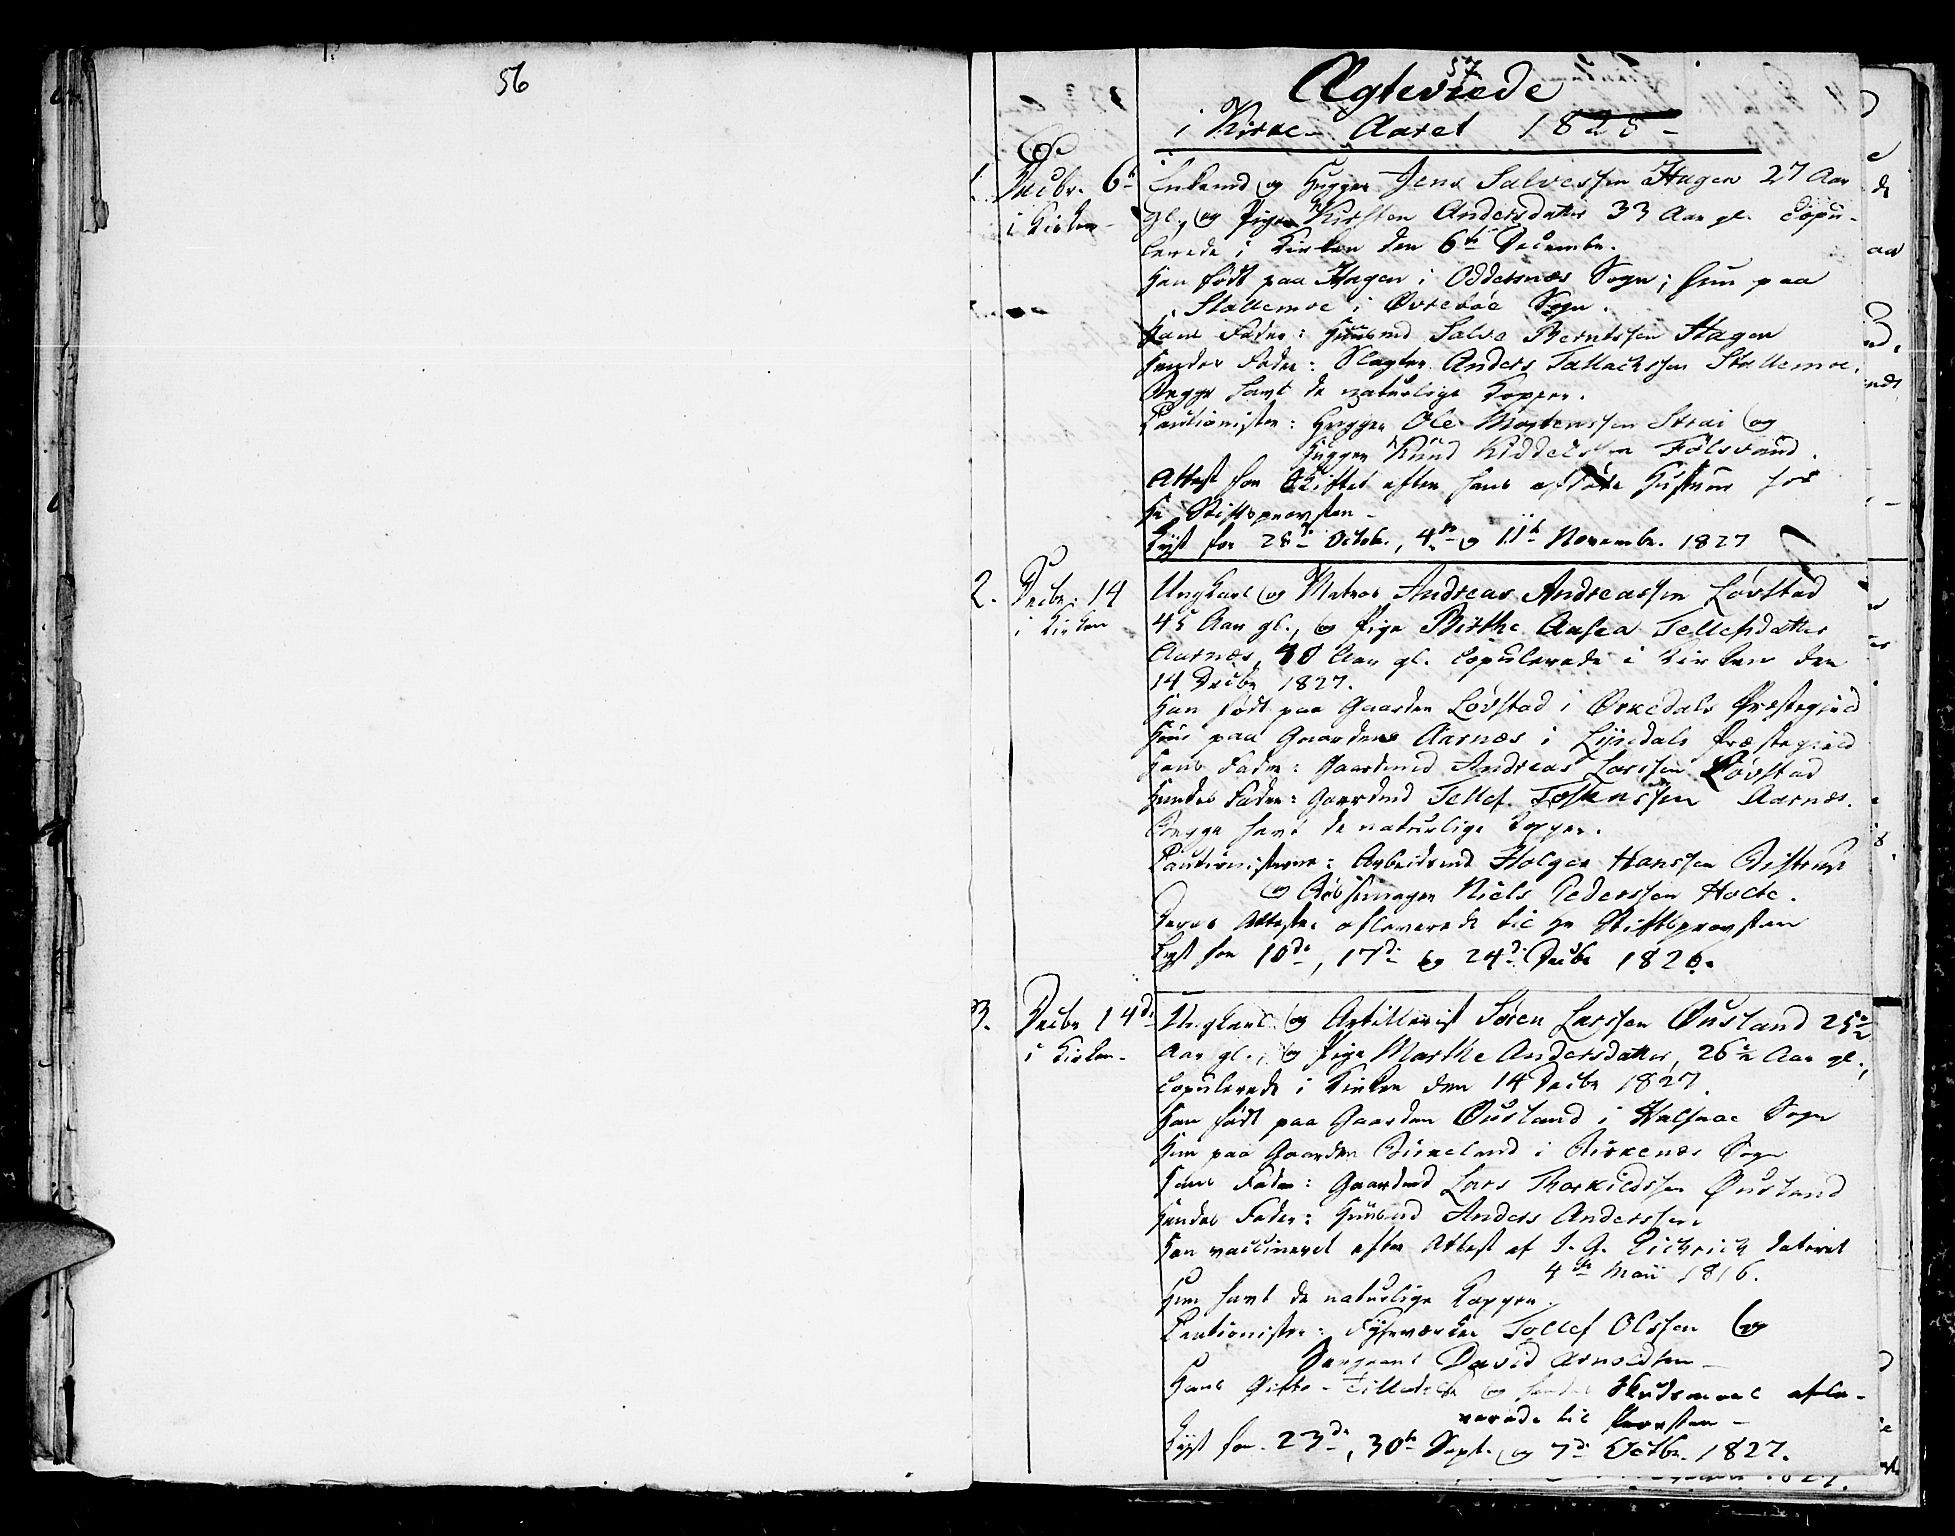 56
57
Ægteviede
i Kirke-Aaret 1828-
1. Decbr. 6te Enkemd og Hugger Jens Salvessen Hagen 27 Aar
i Kirken- gl., og Pige Kirsten Andersdatter 33 Aar gl. Copu-
lerede i Kirken den 6te Decembr.
Han født paa Hagen i Oddernæs Sogn; hun paa
Stallemoe i Øvrebøe Sogn.
Hans Fader: Huusmd Salve Berntssen Hagen
Hendes Fader: Slagter Anders Tallachssen Stallemoe.
Begge havt de naturlige Kopper.
Cautionister: Hugger Ole Mortenssen Strai og
Hugger Knud Kiddelssen Fölsvand.
Attest for Skiftet efter hans afdøde Hustrue hos
Hr Stiftsprovsten-
Lyst for 28de Octobr., 4de og 11te Novembr. 1827
2. Decbr. 14 Ungkarl og Matros Andreas Andreassen Lovstad
i Kirken 45 Aar gl., og Pige Birthe Aasea Tellefsdatter
Aarnæs 40 Aar gl. Copulerede i Kirken den
14 Decbr 1827.
Han født paa Gaarden Lovstad i Ørkedals Præstegield
Hun paa Gaarden Aarnæs i Lyngdals Præstegield
Hans Fader: Gaardmd Andreas Larssen Lovstad
Hendes Fader: Gaardmd Tellef Torkenssen Aarnæs.
Begge havt de naturlige Kopper.
Cautionisterne: Arbeidsmd Holger Hanssen Bistrup
og Bøssemager Niels Pederssen Holte.
Deres Attester afleverede til Hr Stiftsprovsten
Lyst for 10de, 17de og 24de Decbr 1826.
3. Decbr 14de Ungkarl og Artillerist Søren Larssen Øusland 25½
i Kirken- Aar gl., og Pige Marthe Andersdatter, 26½ Aar gl.,
Copulerede i Kirken den 14 Decbr 1827.
Han født paa Gaarden Øusland i Halsaae Sogn
Hun paa Gaarden Birkeland i Birkenæs Sogn
Hans Fader: Gaardmd Lars Thorkildssen Øusland
Hendes Fader: Huusmd Anders Anderssen
Han vaccineret efter Attest af I. G. Eichrich dateret
4de Maii 1816.
Hun havt de naturlige Kopper.
Cautionister: Fyrværker Tollef Olssen og
Sergeant David Arnoldsen-
Hans Gifte-Tilladelse og hendes Skudsmaal afle-
verede til Provsten-
Lyst for 23de, 30te Sept. og 7de Octbr. 1827.